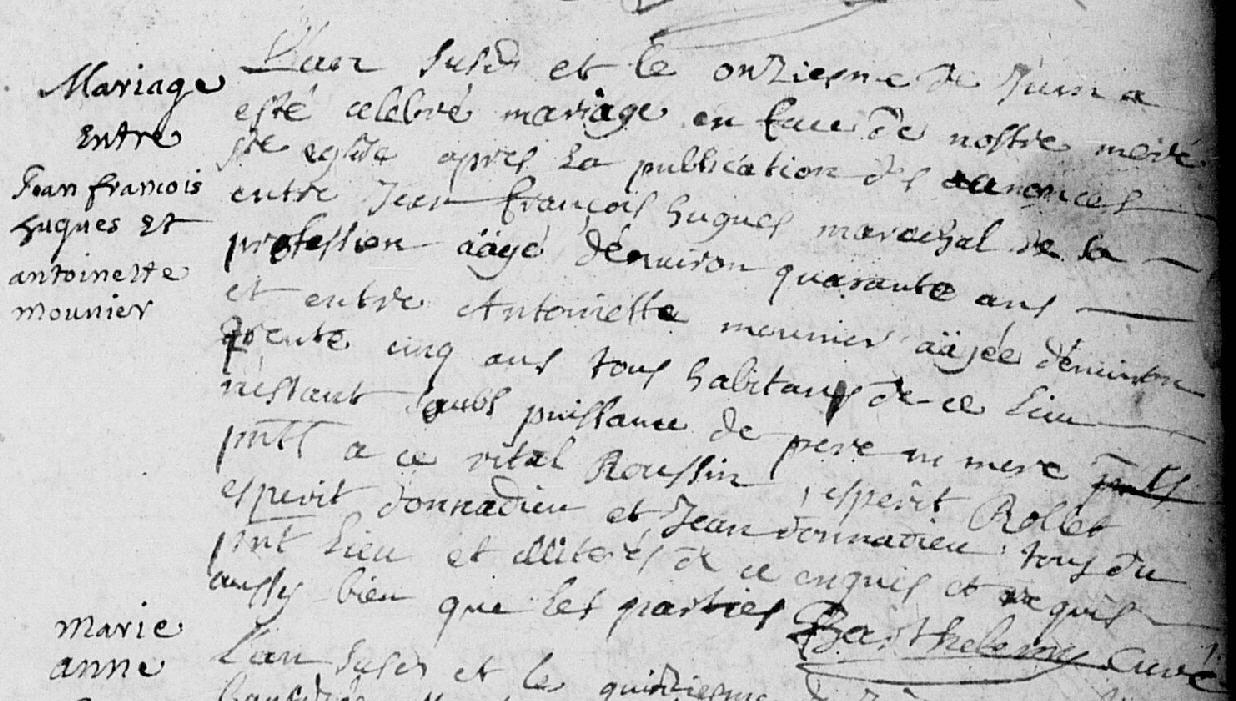 Mariage
Entre
Jean francois
hugues Et
antoinette
mounier
L'an susdt et le onziesme de Juin a
esté celebré mariage en face de nostre mere
ste eglise apres la publication des annonces
entre Jean françois hugues marechal de sa
profession aàgé dénviron quarante ans
et entre Antoinette mounier aàgée dénviron
trente cinq ans tous habitans de ce lieu
n'estant soubs puissance de pere ni mere
pntt a ce vital Roussin, esperit Rollet
esperit donnadieu et Jean donnadieu tous du
pnt lieu et illiterés de ce enquis et requis
aussy bien que les parties Barthelemy Curé
marie
anne
L'an susdt et le quinziesme